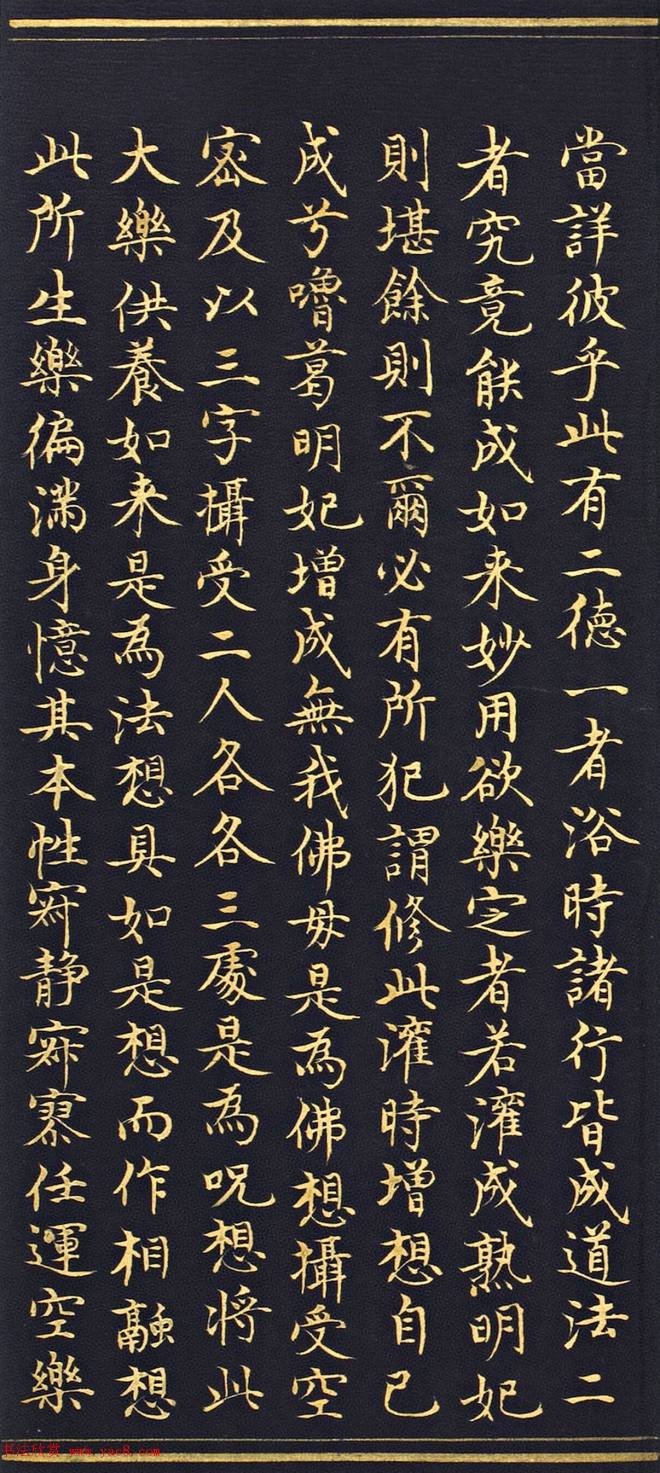 當詳彼乎此有二德一者浴時諸行皆成道法二
者究竟能成如来妙用欲樂定者若灌成熟明妃
則堪餘則不爾必有所犯謂修此灌時增想自己
成兮嚕葛明妃增成無我佛母是為佛想攝受空
密及以三字攝受二人各各三處是為呪想將此
大樂供養如来是為法想具如是想而作相融想
此所生樂徧滿身憶其本性寂静寂寥任運空樂
书法欣赏 www.yac8.com